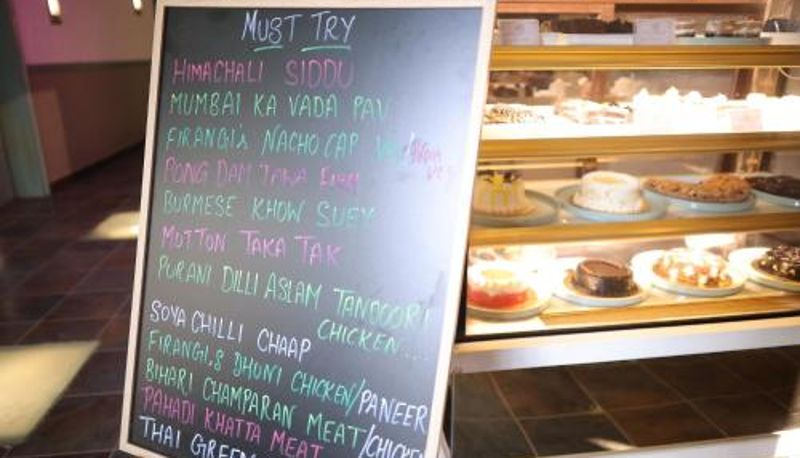 MUST TRY
HIMACHALI SIDDU
MUMBAI KA VADA PAV
FIRANGI's NACHO CAP
PONG DAM TAWA FISH
BURMESE KHOW SUEY
MUTTON TAKA TAK
PURANI DILLI ASLAM TANDOORI
CHICKEN....
SOYA CHILLI CHAAP
FIRANGI.S BHUNI CHICKEN/PANEER
BIHARI CHAMPARAN MEAT/CHICKEN
PAHADI KHATTA MEAT
THAI GREEN